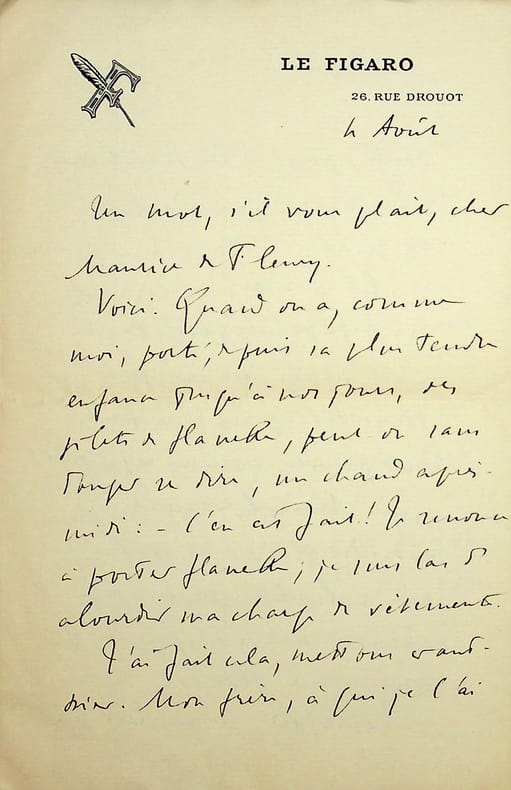 LE FIGARO
26. RUE DROUOT
4 Août
Un mot, s'il vous plait, cher
Maurice de Fleury.
Voici. Quand on a, comme
moi, porté, depuis sa plus tendre
enfance jusqu'à nos jours, des
gilets de flanelle, peut on sans
danger se dire, un chaud après-
midi : - C'en est fait! Je renonce
à porter flanelle; je suis las d'
alourdir ma charge de vêtements.
J'ai fait cela, mettons avant-
hier. Mon frère, à qui je l'ai